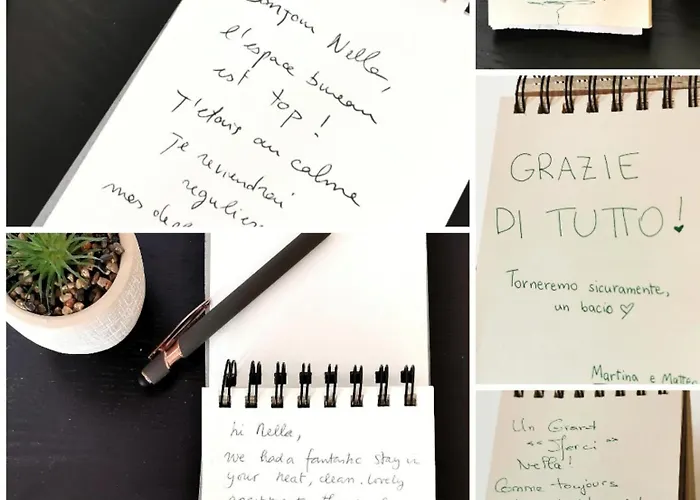 Bonjour Nella,
l'espace bureau
est top !
J'étais au calme
Je reviendrai
mes
GRAZIE
DI TUTTO!
Torneremo sicuramente,
un bacio ♡
Martina e Matteo
hi Nella,
we had a fantastic stay in
your neat, clean, lovely
Un Grand
"Merci"
Nella!
Comme toujours